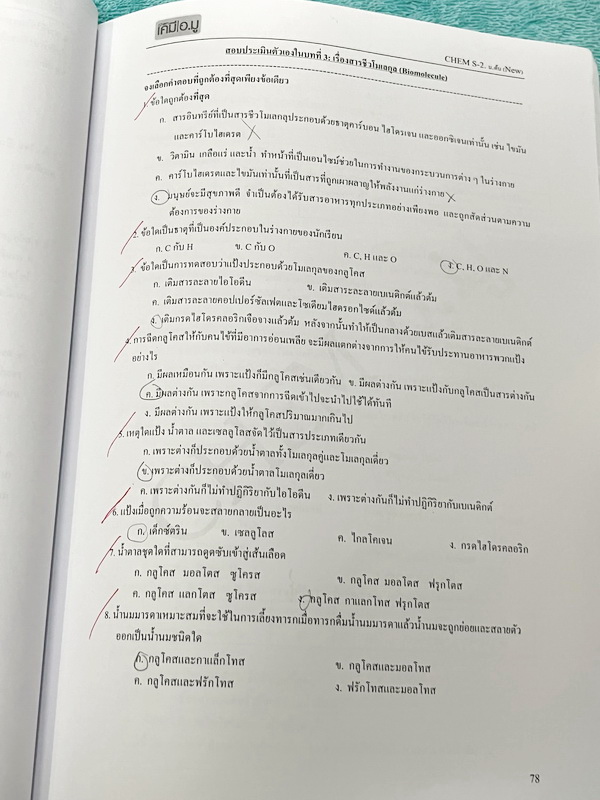 เคมี อ.มู
CHEM S-2. ม.ต้น (New)
สอบประเมินตัวเองในบทที่ 3: เรื่องสารชีวโมเลกุล (Biomolecule)
จงเลือกคำตอบที่ถูกต้องที่สุดเพียงข้อเดียว
1. ข้อใดถูกต้องที่สุด
ก. สารอินทรีย์ที่เป็นสารชีวโมเลกุลประกอบด้วยธาตุคาร์บอน ไฮโดรเจน และออกซิเจนเท่านั้น เช่น ไขมัน
และคาร์โบไฮเดรต
ข. วิตามิน เกลือแร่ และน้ำ ทำหน้าที่เป็นเอนไซม์ช่วยในการทำงานของกระบวนการต่าง ๆ ในร่างกาย
ค. คาร์โบไฮเดรตและไขมันเท่านั้นที่เป็นสารที่ถูกเผาผลาญให้พลังงานแก่ร่างกาย
ง. มนุษย์จะมีสุขภาพดี จำเป็นต้องได้รับสารอาหารทุกประเภทอย่างเพียงพอ และถูกสัดส่วนตามความ
ต้องการของร่างกาย
2. ข้อใดเป็นธาตุที่เป็นองค์ประกอบในร่างกายของนักเรียน
ก. C กับ H ข. C กับ O ค. C, H และ O ง. C, H, O และ N
3. ข้อใดเป็นการทดสอบว่าแป้งประกอบด้วยโมเลกุลของกลูโคส
ก. เติมสารละลายไอโอดีน ข. เติมสาระละลายเบเนดิกต์แล้วต้ม
ค. เติมสารละลายคอปเปอร์ซัลเฟตและโซเดียมไฮดรอกไซด์แล้วต้ม
ง. เติมกรดไฮโดรคลอริกเจือจางแล้วต้ม หลังจากนั้นทำให้เป็นกลางด้วยเบสแล้วเติมสารละลายเบเนดิกต์
4. การฉีดกลูโคสให้กับคนไข้ที่มีอาการอ่อนเพลีย จะมีผลแตกต่างจากการให้คนไข้รับประทานอาหารพวกแป้ง
อย่างไร
ก. มีผลเหมือนกัน เพราะแป้งก็มีกลูโคสเช่นเดียวกัน ข. มีผลต่างกัน เพราะแป้งกับกลูโคสเป็นสารต่างกัน
ค. มีผลต่างกัน เพราะกลูโคสจากการฉีดเข้าไปจะนำไปใช้ได้ทันที
ง. มีผลต่างกัน เพราะแป้งให้กลูโคสปริมาณมากเกินไป
5. เหตุใดแป้ง น้ำตาล และเซลลูโลสจัดไว้เป็นสารประเภทเดียวกัน
ก. เพราะต่างก็ประกอบด้วยน้ำตาลทั้งโมเลกุลคู่และโมเลกุลเดี่ยว
ข. เพราะต่างก็ประกอบด้วยน้ำตาลโมเลกุลเดี่ยว
ค. เพราะต่างกันก็ไม่ทำปฏิกิริยากับไอโอดีน ง. เพราะต่างกันก็ไม่ทำปฏิกิริยากับเบเนดิกต์
6. แป้งเมื่อถูกความร้อนจะสลายกลายเป็นอะไร
ก. เด็กซ์ตริน ข. เซลลูโลส ค. ไกลโคเจน ง. กรดไฮโดรคลอริก
7. น้ำตาลชุดใดที่สามารถดูดซับเข้าสู่เส้นเลือด
ก. กลูโคส มอลโตส ซูโครส ข. กลูโคส มอลโตส ฟรุกโตส
ค. กลูโคส แลกโตส ซูโครส ง. กลูโคส กาแลกโทส ฟรุกโตส
8. น้ำนมมารดาเหมาะสมที่จะใช้ในการเลี้ยงทารกเมื่อทารกดื่มน้ำนมมารดาแล้วน้ำนมจะถูกย่อยและสลายตัว
ออกเป็นน้ำนมชนิดใด
ก. กลูโคสและกาแล็กโทส ข. กลูโคสและมอลโทส
ค. กลูโคสและฟรักโทส ง. ฟรักโทสและมอลโทส
78